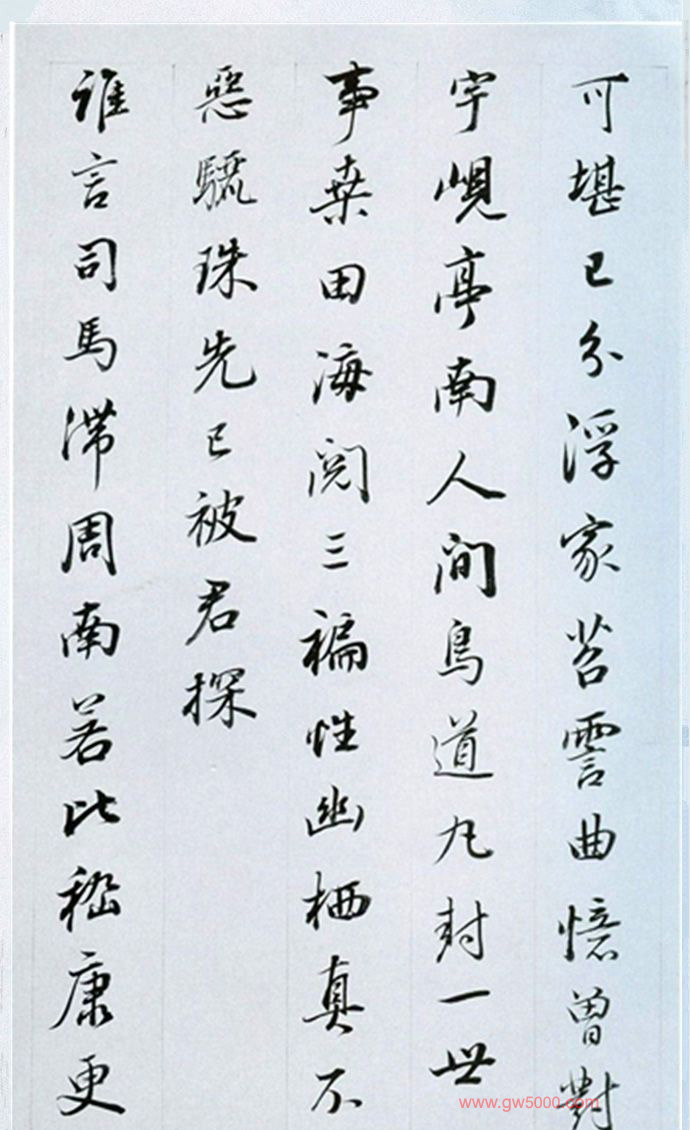 可堪已分浮家苕霅曲憶曾對
宇峴亭南人間鳥道丸封一世
事桒田海閱三褊性幽栖真不
惡驪珠先已被君探
誰言司馬滞周南若比嵇康更
www.gw5000.com